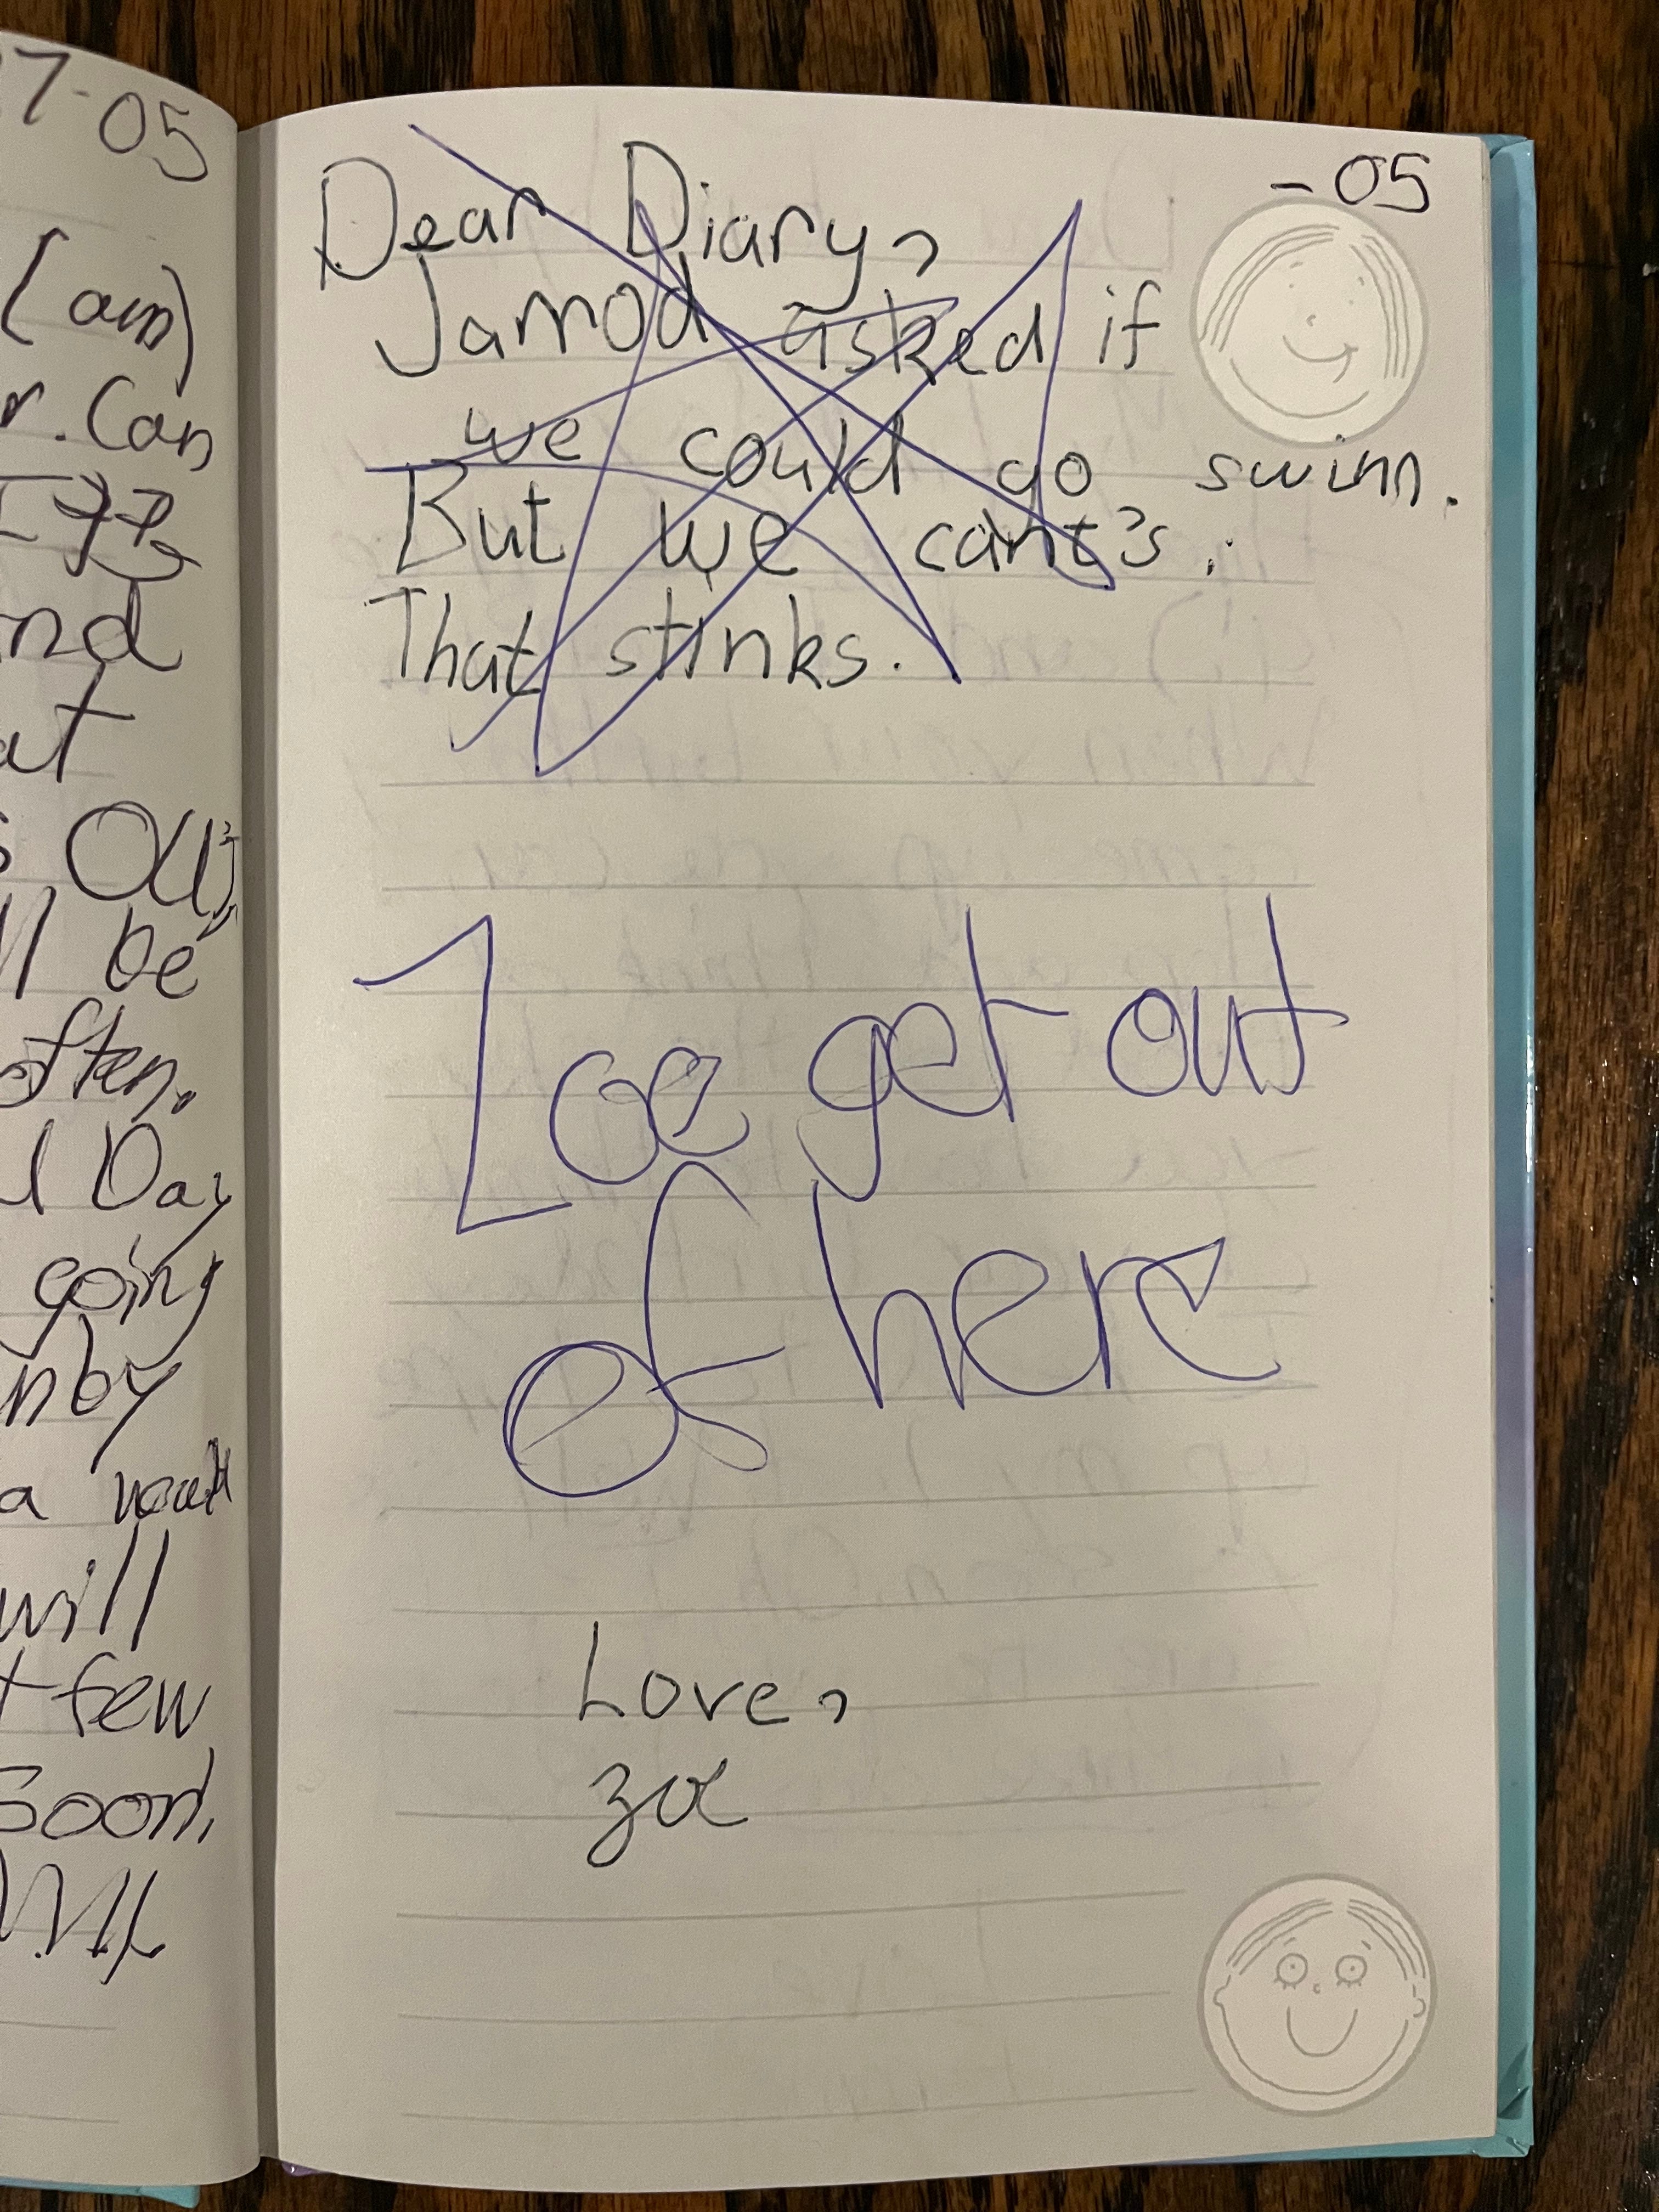 7-05
(am)
r. Can
and
at
s Old
ll be
often.
l Day
going
nby
a
will
t few
soon,
-05
Dear Diary,
Jarrod asked if
we could go swim.
But we cant's.
That stinks.
Zoe get out
of here
Love,
Zoe